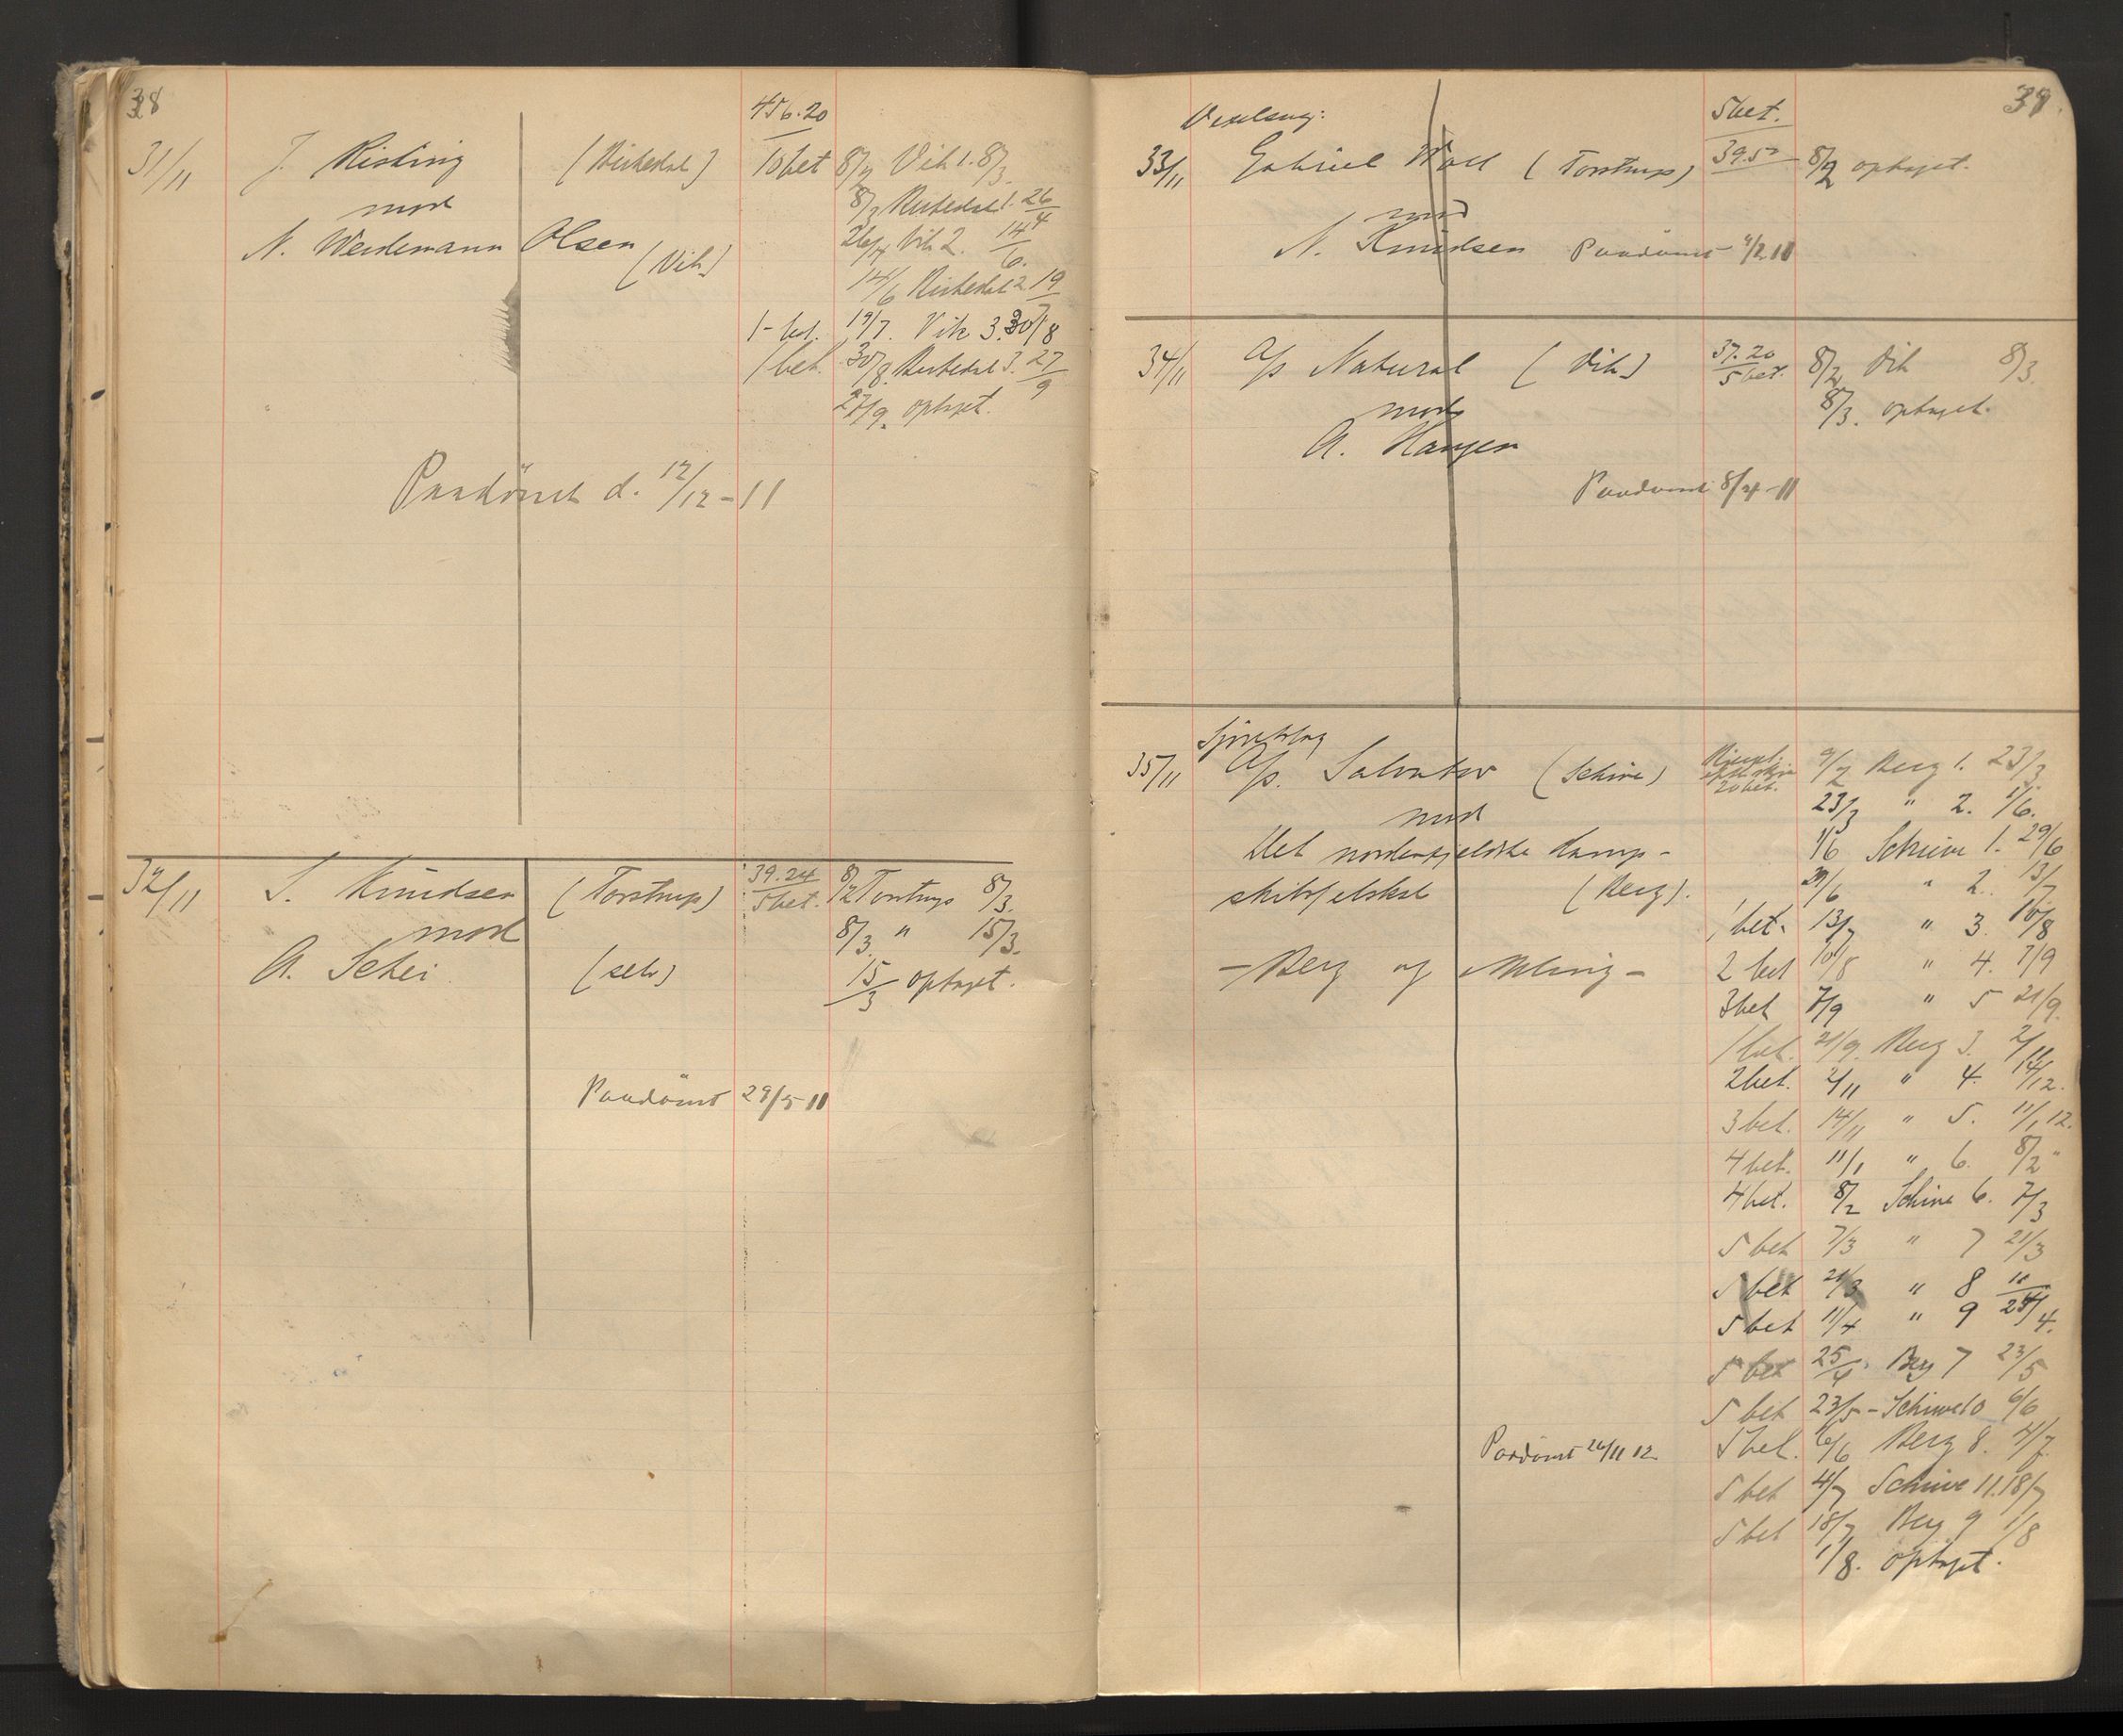 38
456.20
31/11 J. Risting (Birkedal) 10 bet 8/2 Vik 1. 8/3.
mod 8/3 Birkedal 1. 26/4
N. Weidemann Olsen (Vik) 26/4 Vik 2. 14/6.
14/6 Birkedal 2 19/7
1 - bet. 19/7. Vik 3. 30/8
1 bet. 30/8. Birkedal 3. 27/9
27/9. optaget.
Paadömt d. 12/12-11
32/11 S. Knudsen (Torstrup) 39.24 8/2 Torstrup 8/3.
mod 5 bet. 8/3. " 15/3.
A. Schei (selv) 15/3 optaget.
Paadömt 29/5 11
39.
Vexelsag: 5 bet.
33/11 Gabriel Wall (Torstrup) 39.50 8/2 optaget.
mod
N. Knudsen Paadömt 9/2 11
34/11 A/s Natural (Vik) 37.20 8/2 Vik 8/3.
mod 5 bet. 8/3. optaget.
A. Haugen
Paadömt 8/4-11
Sjöretssag
35/11 A/s. Salvator (Schive) 20 bet. 9/2 Berg 1. 23/3
mod 23/3 " 2. 1/6.
Det nordenfjeldske Damp- 1/6 Schive 1. 29/6
skibsselskab (Berg). 29/6 " 2. 13/7
1 bet. 13/7 " 3. 10/8
- Berg og Meling - 2 bet 10/8 " 4. 7/9
3 bet 7/9 " 5 21/9.
1 bet. 21/9. Berg 3. 2/11
2 bet. 2/11 " 4. 14/12.
3 bet. 14/11 " 5. 11/1 12.
4 bet. 11/1 " 6. 8/2 "
4 bet. 8/2 Schive 6. 7/3
5 bet 7/3 " 7 21/3
5 bet 21/3 " 8 11/4
5 bet 11/4 " 9 25/4.
5 bet 25/4. Berg 7 23/5
5 bet 23/5 - Schive 10 6/6
Paadömt 26/11 12 5 bet. 6/6 Berg 8. 4/7
5 bet 4/7 Schive 11. 18/7
5 bet 18/7 Berg 9 1/8
1/8. optaget.